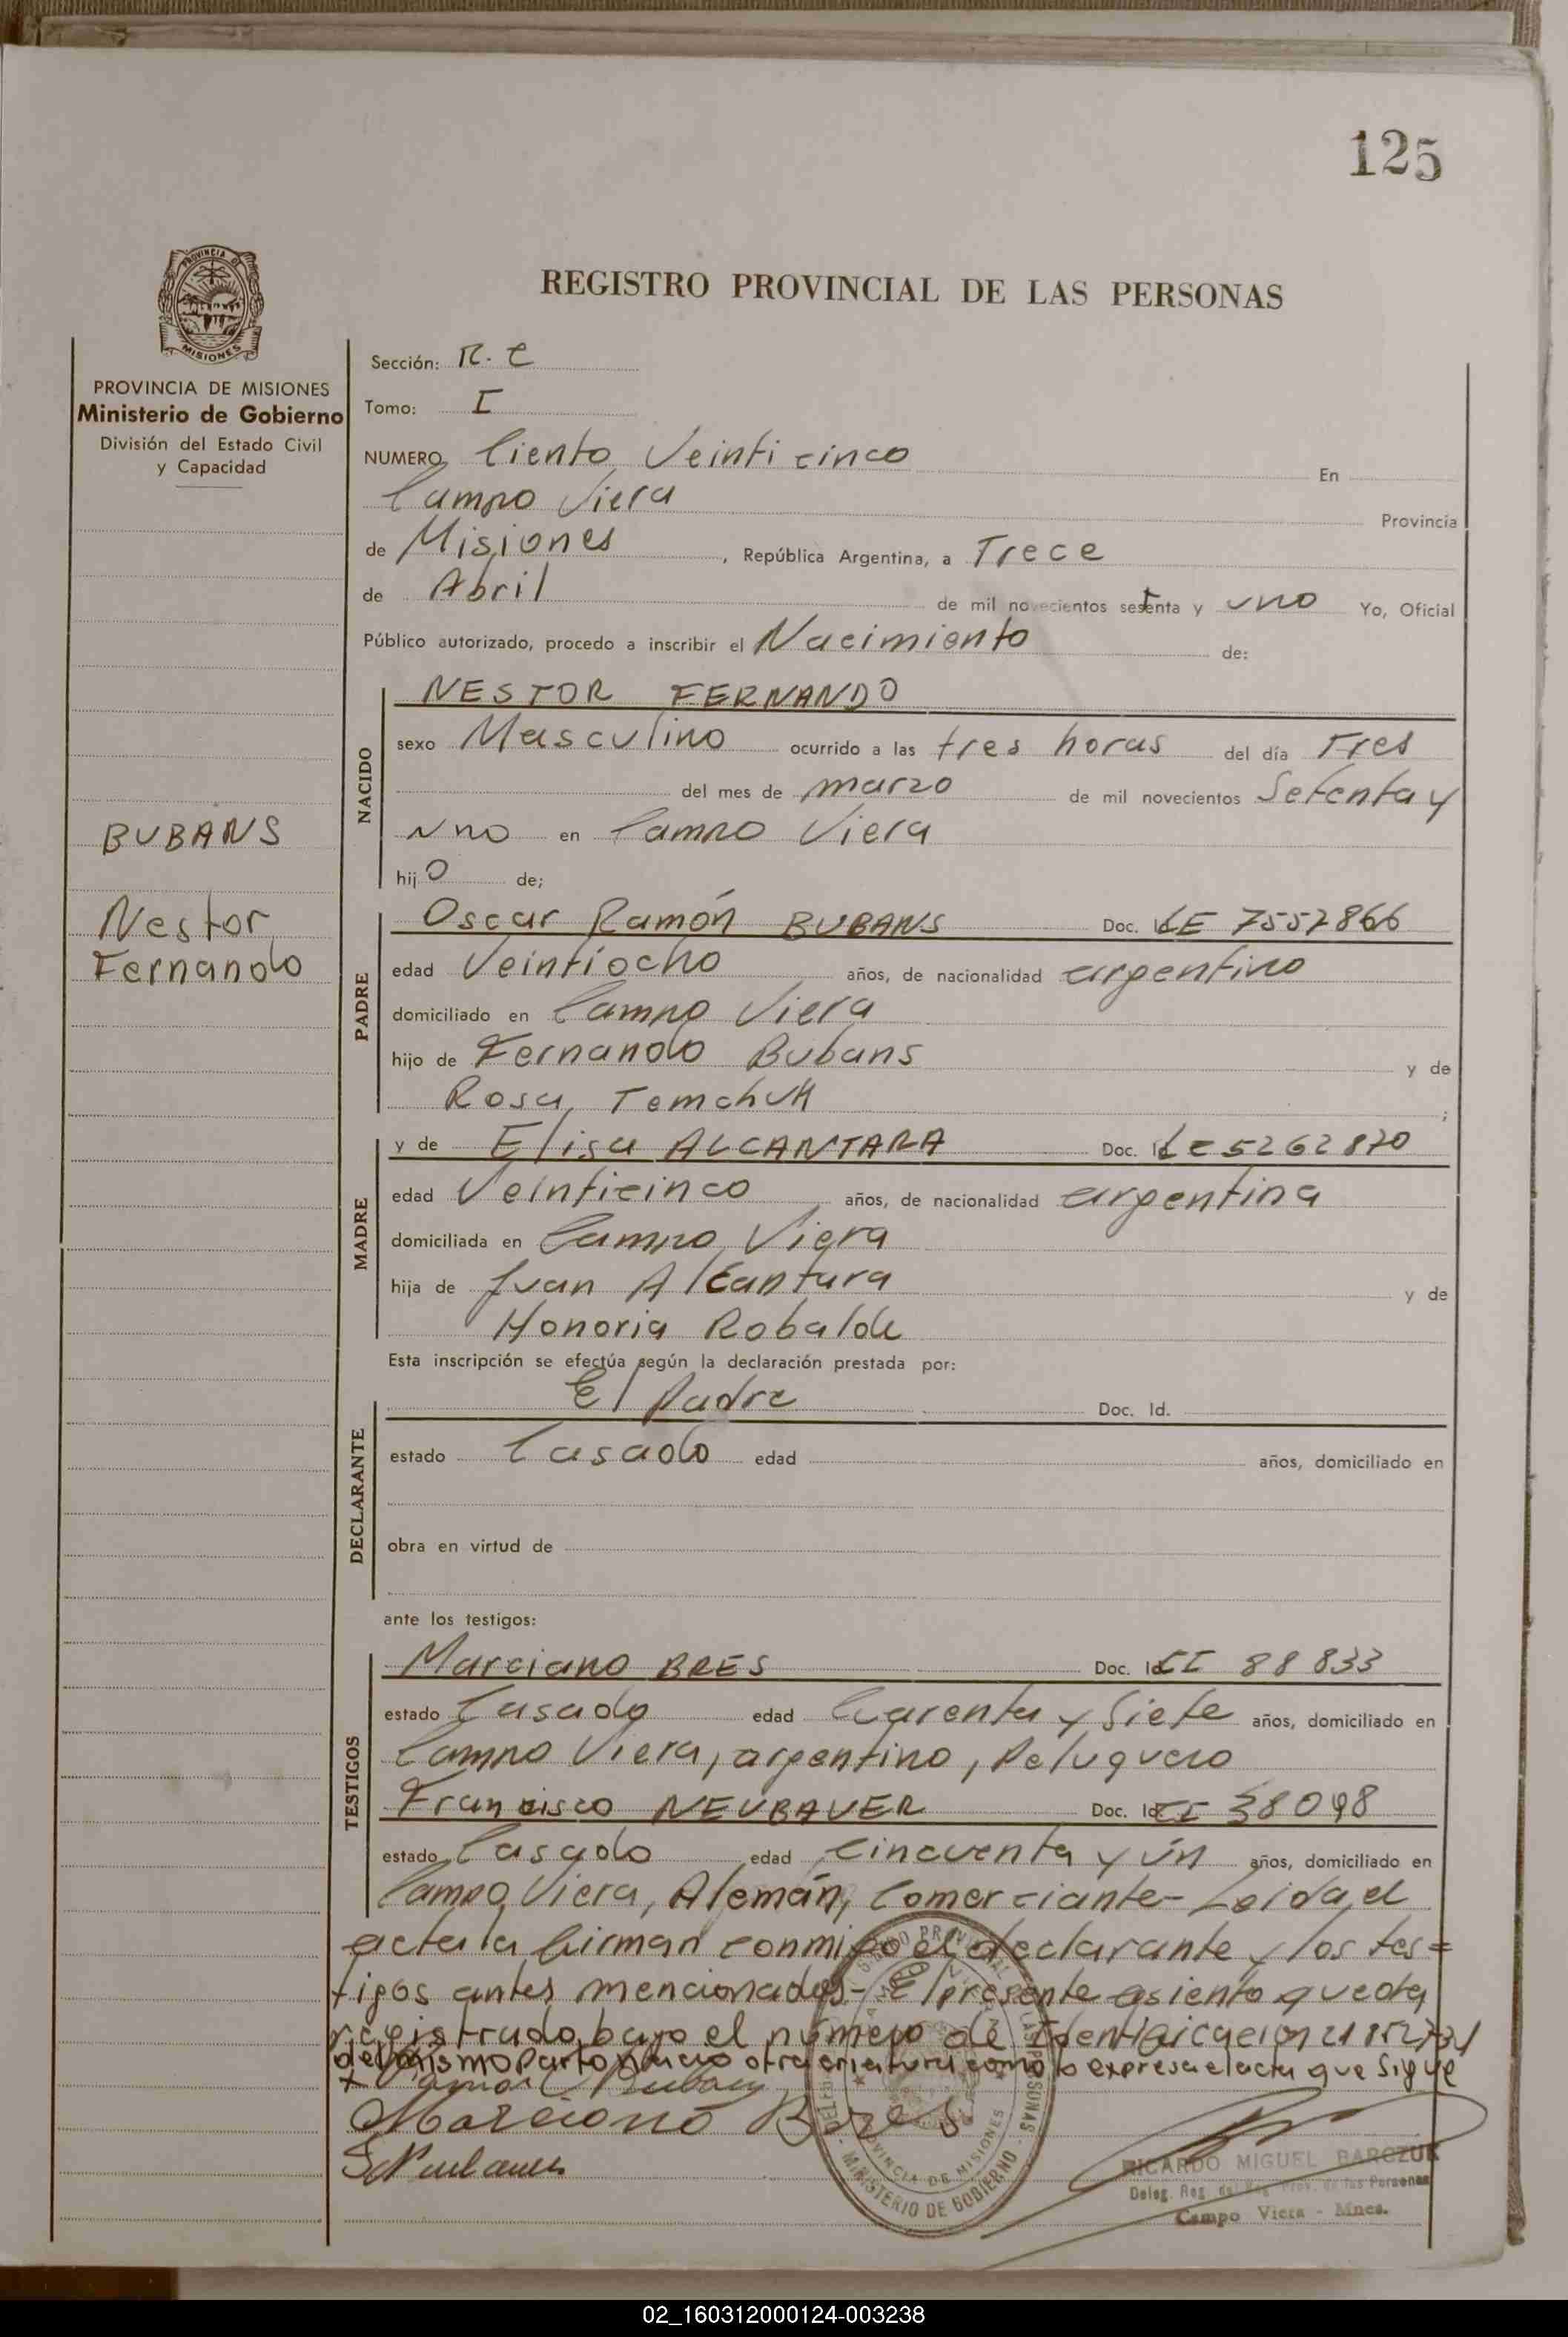 125
REGISTRO PROVINCIAL DE LAS PERSONAS
PROVINCIA DE
MISIONES
PROVINCIA DE MISIONES
Ministerio de Gobierno
División del Estado Civil
y Capacidad
BUBANS
Nestor
Fernando
Sección: R. C
Tomo: I
NUMERO Ciento Veinti cinco En
Campo Viera Provincia
de Misiones, República Argentina, a Trece
de Abril de mil novecientos setenta y uno Yo, Oficial
Público autorizado, procedo a inscribir el Nacimiento de:
NACIDO
NESTOR FERNANDO
sexo Masculino ocurrido a las tres horas del día Tres
del mes de marzo de mil novecientos Setenta y
uno en Campo Viera
hijo de;
PADRE
Oscar Ramón BUBANS Doc. LE 7557866
edad Veintiocho años, de nacionalidad argentino
domiciliado en Campo Viera
hijo de Fernando Bubans y de
Rosa Temchuk;
MADRE
y de Elisa ALCANTARA Doc. LC 5262870
edad Veinticinco años, de nacionalidad argentina
domiciliada en Campo Viera
hija de Juan Alcantara y de
Honoria Robalde
Esta inscripción se efectúa según la declaración prestada por:
DECLARANTE
El Padre Doc. Id.
estado Casado edad años, domiciliado en
obra en virtud de
ante los testigos:
TESTIGOS
Marciano BRES Doc. Id CI 88833
estado Casado edad Cuarenta y Siete años, domiciliado en
Campo Viera, argentino, Peluquero
Francisco NEUBAUER Doc. Id CI 38098
estado Casado edad Cincuenta y ún años, domiciliado en
Campo Viera, Alemán, Comerciante- Leida el
acta la firman conmigo el declarante y los tes=
tigos antes mencionados- El presente asiento queda
registrado bajo el número de Identificacion 21852731
del mismo parto nacio otra criatura como lo expresa el acta que sigue
Marciano Bres
MINISTERIO DE GOBIERNO
PROVINCIA DE MISIONES
RICARDO MIGUEL BARCZUK
Deleg. Reg. del Reg. Prov. de las Personas
Campo Viera - Mnes.
02_160312000124-003238